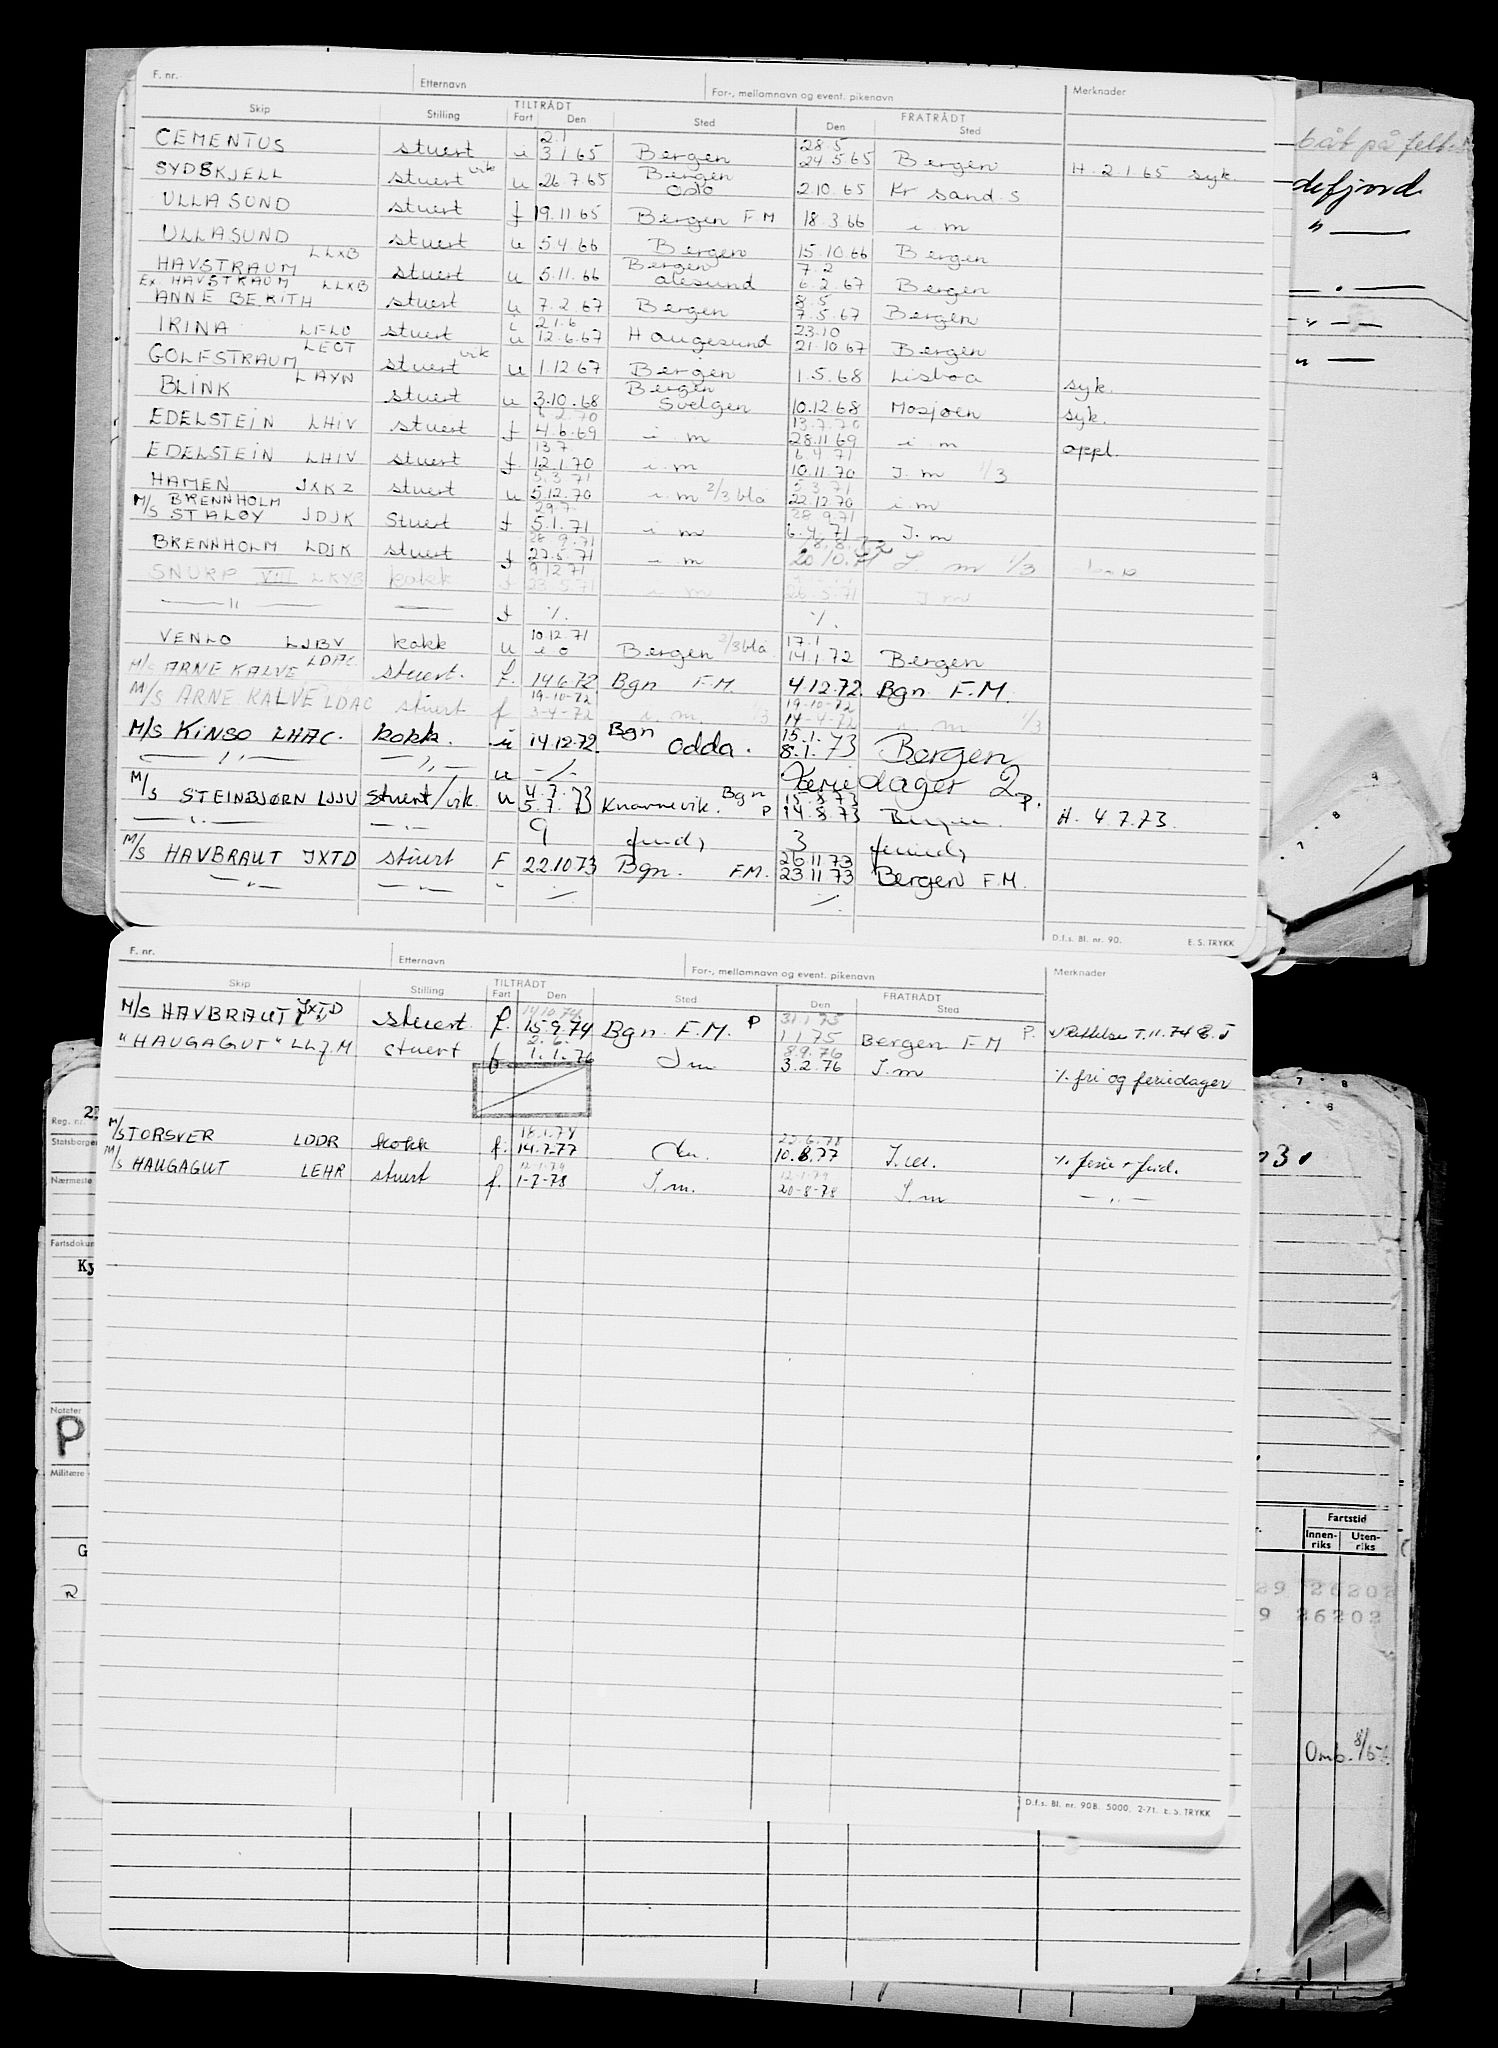 F. nr. Etternavn For-, mellomnavn og event. pikenavn Merknader
TILTRÅDT FRATRÅDT
Skip Stilling Fart Den Sted Den Sted
2.1 28.5
CEMENTUS stuert i 3.1.65 Bergen 24.5.65 Bergen H. 2.1.65 syk.
vik Bergen
SYDSKJELL stuert u 26.7.65 Oslo 2.10.65 Kr sand S
ULLASUND stuert f 19.11.65 Bergen F M 18.3.66 i m
ULLASUND stuert u 5.4.66 Bergen 15.10.66 Bergen
LLXB Bergen 7.2
HAVSTRAUM stuert u 5.11.66 Ålesund 6.2.67 Bergen
Ex HAVSTRAUM LLXB 8.5
ANNE BERITH stuert u 7.2.67 Bergen 7.5.67 Bergen
i 2.1.6 23.10
IRINA LFLO stuert u 12.6.67 Haugesund 21.10.67 Bergen
LEOT vik
GOLFSTRAUM stuert u 1.12.67 Bergen 1.5.68 Lisboa syk.
LAYN Bergen
BLINK stuert u 3.10.68 Svelgen 10.12.68 Mosjøen syk.
2.70 13.7.70
EDELSTEIN LHIV stuert f 4.6.69 i m 28.11.69 i m oppl.
13.7 6.4.71
EDELSTEIN LHIV stuert f 12.1.70 i m 10.11.70 I. m 1/3
5.3.71 5.3.71
HAMEN JXKZ stuert u 5.12.70 i m 2/3 blå 22.12.70 i m
M/S BRENNHOLM 29.7. 28.9.71
M/S STALØY JDJK Stuert f 5.1.71 i m 6.4.71 I. m
28.9.71
BRENNHOLM LDJK stuert f 27.5.71 i m 20.10.71 I m 1/3
9.12.71
SNURP VIII LKYB kokk f 23.5.71 i m 26.5.71 I m
— " — — f ./. ./.
10.12.71 17.1
VENLO LJBV kokk u i o Bergen 2/3 blå 14.1.72 Bergen
LDAC.
M/S ARNE KALVE stuert. f. 14.6.72 Bgn F.M. 4.12.72 Bgn. F.M.
19-10-72 19-10-72
M/S ARNE KALVE LDAC stuert f 3-4-72 i. m. 1/3 14-4-72 i m 1/3
Bgn 15.1.
M/S KINSO LHAC. kokk. u 14.12.72 Odda. 8.1.73 Bergen
— " — — " — u -/- Feriedager 2
4.7.73 Bgn 15.8.73 P.
M/S STEINBJØRN LJJU stuert/vik. u 5.7.73 Knarrevik. P 14.8.73 Bergen. H. 4.7.73.
— " — — " — 9 frid, 3 feried,
26 11 73
M/S HAVBRAUT JXTD stuert F 22.10 73 Bgn. F.M. 23 11 73 Bergen F.M.
— " — — " — - ./. ./.
D.f.s. Bl. nr. 90. E. S. TRYKK
F. nr. Etternavn For-, mellomnavn og event. pikenavn Merknader
TILTRÅDT FRATRÅDT
Skip Stilling Fart Den Sted Den Sted
14/10.74 31.1.75
M/S HAVBRAUT JXTD stuert f. 15.9.74 Bgn. F.M. P 1.1.75 Bergen F M P. T.11.74
2.6. 8.9.76
"HAUGAGUT" LL.J.M stuert f 1.1.76 I m 3.2.76 I.m ./. fri og feriedager
18.1.78 22.6.78
M/S TORSVER LDDR kokk f. 14.7.77 I m. 10.8.77 I.m. ./. ferie + frid.
12.1.79 12.1.79
M/S HAUGAGUT LEHR stuert f. 1-7-78 I.m. 20-8-78 I.m — " —
D.f.s. Bl. nr. 90B. 5000. 2-71. E. S. TRYKK
båt på felt
defjord
" —
— " —
- " -
" —
Reg. nr.
Statsborger
Nærmeste
Fartsdokum
Ky
Notater
P
Militære
G
R
Fartstid
Innen-riks Uten-riks
29 26202
9 26202
Omb. 8/5